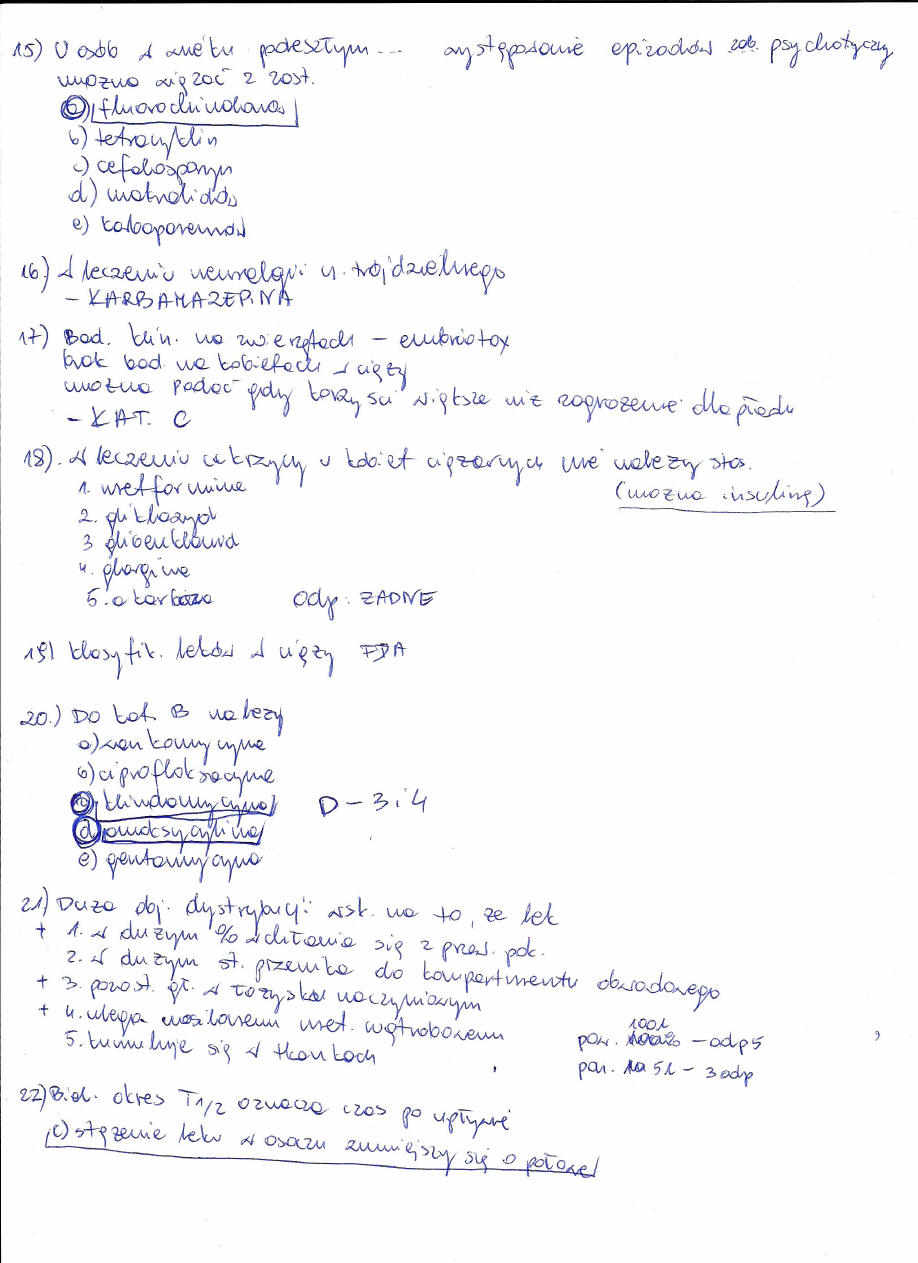 15) U osób w wieku podeszłym... występowanie epizodów zab. psychotyczny
można wiązać z zast.
a) fluorochinolonów
b) tetracyklin
c) cefalosporyn
d) makrolidów
e) karbapenemów
16.) W leczeniu neuralgii n. trójdzielnego
- KARBAMAZEPINA
17) Bad. klin. na zwierzętach - embriotox
brak bad. na kobietach w ciąży
można podać gdy korzyści większe niż zagrożenie dla płodu
- KAT. C
18). W leczeniu cukrzycy u kobiet ciężarnych nie należy stos.
1. metformina (można insulinę)
2. gliklazyd
3 glibenklamid
4. glargina
5. akarboza odp: ŻADNE
19) klasyfik. leków w ciąży FDA
20.) Do kat. B należy
a) wankomycyna
b) ciprofloksacyna
c) klindamycyna D - 3 i 4
d) amoksycylina
e) gentamycyna
21) Duża obj. dystrybucji wsk. na to, że lek
+ 1. w dużym % wchłania się z przew. pok.
2. w dużym st. przenika do kompartmentu obwodowego
+ 3. pozost. gł. w łożysku naczyniowym
+ 4. ulega nasilonemu met. wątrobowemu
5. kumuluje się w tkankach
100l
pow. - odp 5
pon. 5l - 3 odp
22) Biol. okres T1/2 oznacza czas po upływie
c) stężenie leku w osoczu zmniejszy się o połowę